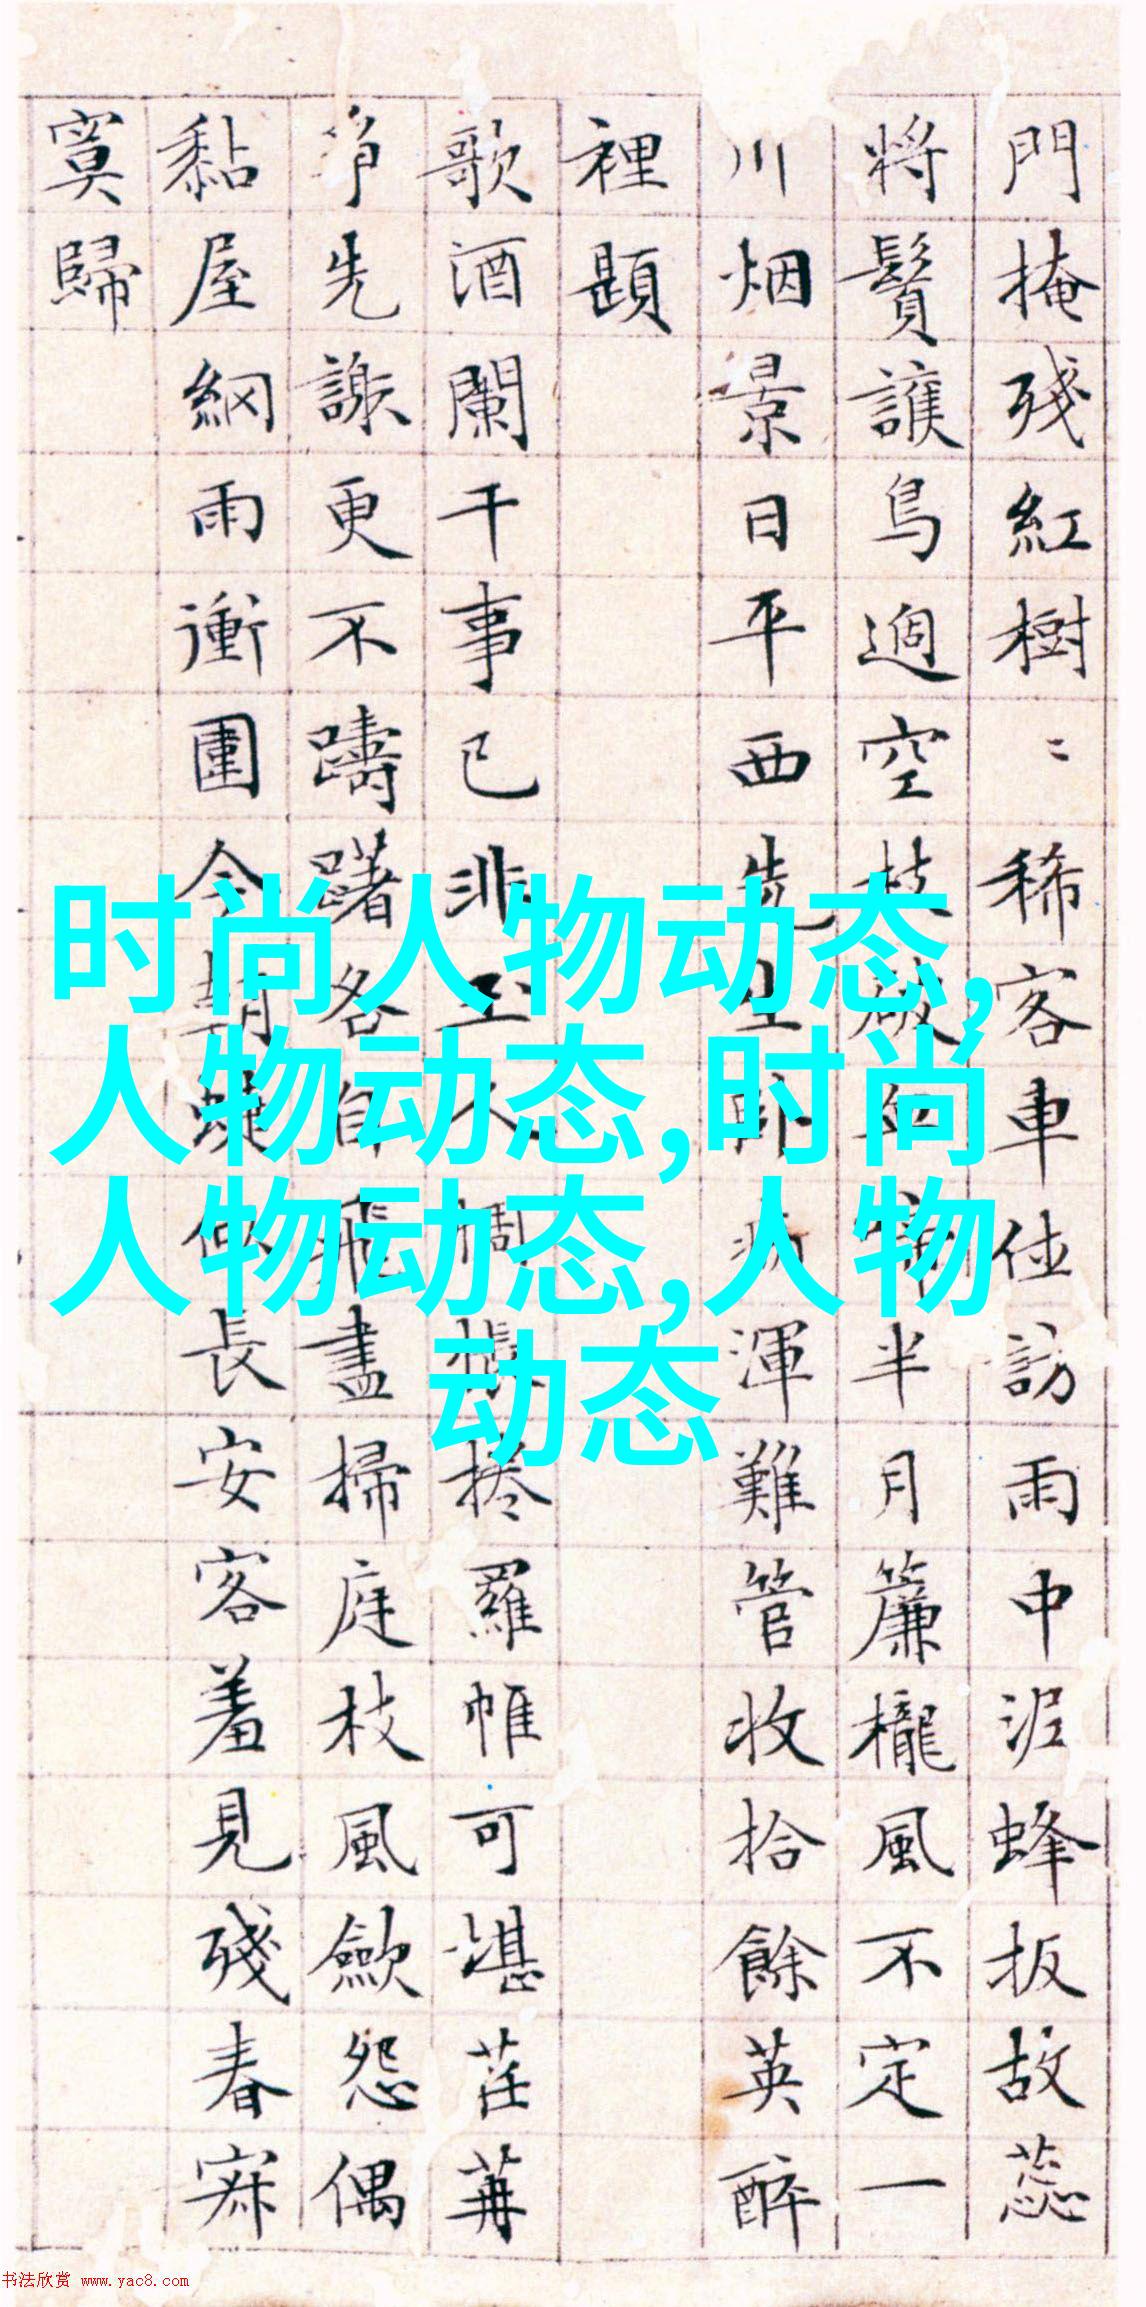 門掩殘紅樹〻稀客車訪雨中泥蜂扳故蕊
將鬚護鳥過空枝破半月簾櫳風不定一
川烟景日平西先生卧病渾難管收拾餘英醉
裡題
歌酒闌干事已非玉人惆悵捲羅帷可堪荏苒
爭先謝更不躊躇各自飛盡掃庭枝風歛怨偶
黏屋網雨衝圍今朝長安客羞見殘春寂
寞歸
时尚人物动态,
人物动态,时尚
人物动态,人物
动态
书法欣赏 www.yac8.com